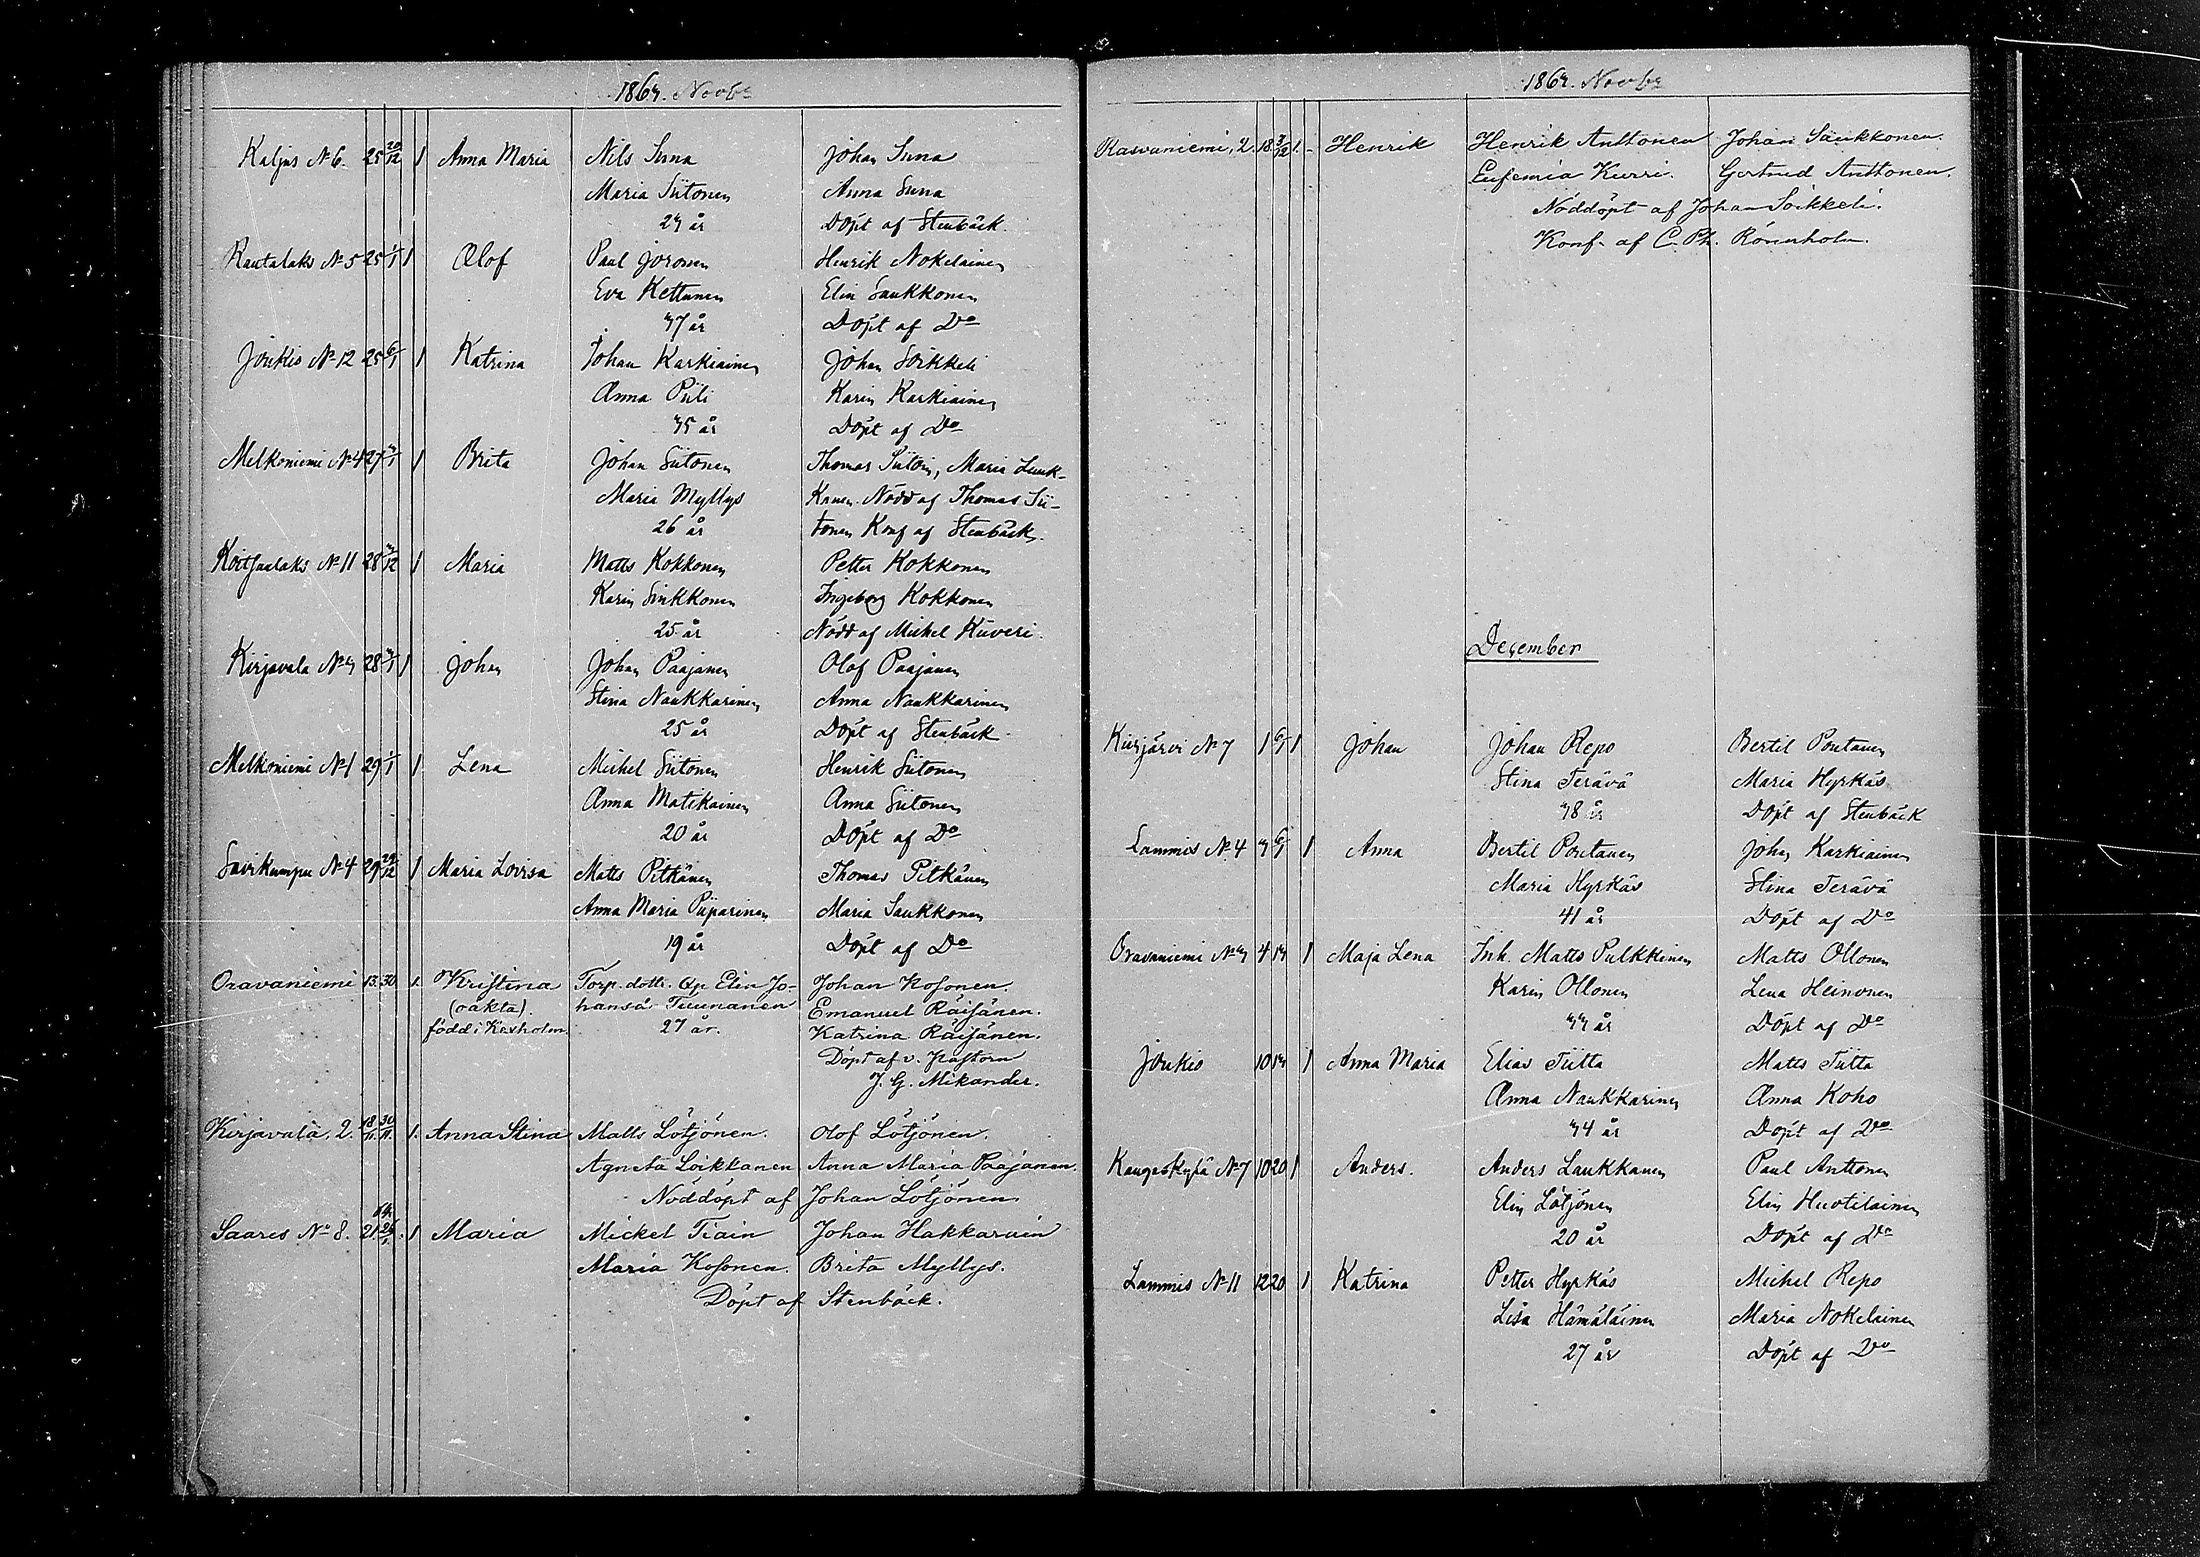 1863. Novbr
Kaljus No 6. 25 20/12 1 Anna Maria Nils Suna Johan Suna
Maria Siitonen Anna Suna
23 år Döpt af Stenbäck.
Rautalaks No 5 25 1/1 1 Olof Paul Joronen Henrik Nokelainen
Eva Kettunen Elin Saukkonen
37 år Döpt af Do
Joukio No 12 25 6/1 1 Katrina Johan Karkiainen Johan Soikkeli
Anna Piili Karin Karkiainen
35 år Döpt af Do
Melkoniemi No 4 27 3/1 1 Brita Johan Siitonen Thomas Siitoin, Maria Luuk-
Maria Myllys kanen. Nödd af Thomas Sii-
26 år tonen Konf af Stenbäck.
Koitsanlaks No 11 28 3/12 1 Maria Matts Kokkonen Petter Kokkonen
Karin Sinkkonen Ingeborg Kokkonen
25 år Nödd af Michel Kuveri.
Kirjavala No 3 28 3/1 1 Johan Johan Paajanen Olof Paajanen
Stina Naukkarinen Anna Naukkarinen
25 år Döpt af Stenbäck.
Melkoniemi No 1 29 1/1 1 Lena Michel Siitonen Henrik Siitonen
Anna Matikainen Anna Siitonen
20 år Döpt af Do
Savikumpu No 4 29 29/12 1 Maria Lovisa Matts Pitkänen Thomas Pitkänen
Anna Maria Piiparinen Maria Saukkonen
19 år Döpt af Do
Oravaniemi 13. 30 1. Kristina Torp. dottr. Qp. Elin Jo- Johan Kosonen.
(oäkta). hansd. Tiunnanen Emanuel Räisänen.
född i Kexholm. 27 år. Katrina Räisänen.
Döpt af v. pastorn
J. G. Mikander.
Kirjavala, 2. 18/11. 30/11. 1. Anna Stina Matts Lötjönen. Olof Lötjönen.
Agneta Loikkanen Anna Maria Paajanen.
Nöddöpt af Johan Lötjönen
Saares No 8. 21 1 Maria Mickel Tiain Johan Hakkarain
Maria Kosonen. Brita Myllys.
Döpt af Stenbäck.
1863. Novbr
Rasvaniemi, 2. 18. 3/12 1. Henrik Henrik Anttonen Johan Saukkonen.
Eufemia Kurri. Gertrud Anttonen.
Nöddöpt af Johan Soikkeli.
Konf. af C. Ph. Rönnholm.
December
Kirjärvi No 7 1 6/1 1 Johan Johan Repo Bertil Pontanen
Stina Terävä Maria Hyrkäs
38 år Döpt af Stenbäck
Lammis No 4 3 6/1 1 Anna Bertil Pontanen Johan Karkiainen
Maria Hyrkäs Stina Terävä
41 år Döpt af Do
Oravaniemi No 3 4 13 1 Maja Lena Inh. Matts Pulkkinen Matts Ollonen
Karin Ollonen Lena Heinonen
33 år Döpt af Do
Joukio 10 13 1 Anna Maria Elias Tiitta Matts Tiitta
Anna Naukkarinen Anna Koho
34 år Döpt af Do
Kangaskylä No 7 10 20 1 Anders. Anders Laukkanen Paul Anttonen
Elin Lötjönen Elin Huotilainen
20 år Döpt af Do
Lammis No 11 12 20 1 Katrina Petter Hyrkäs Michel Repo
Lisa Hämäläinen Maria Nokelainen
27 år Döpt af Do